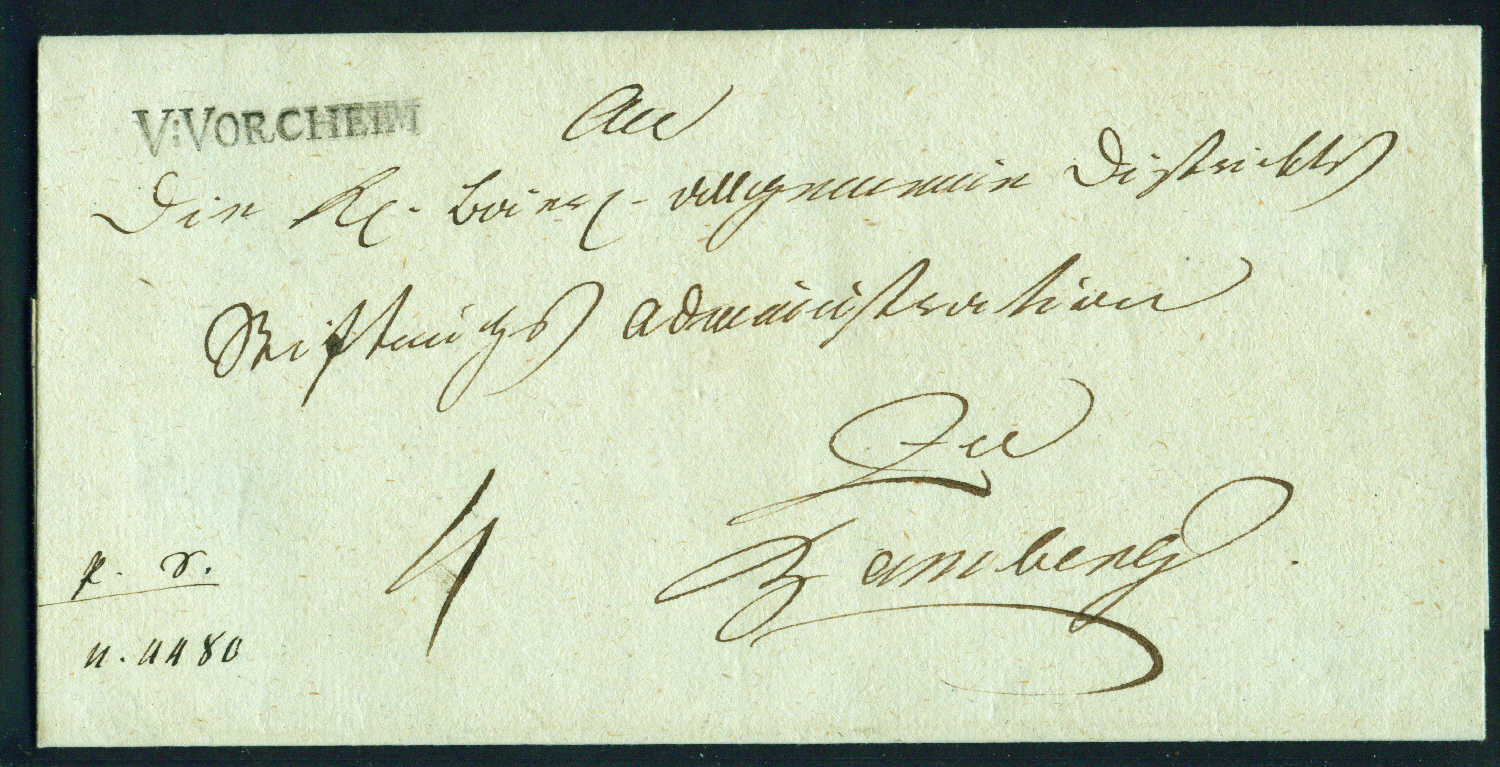 V:VORCHEIM
An
Die Kg. baier. allgemeine Districkts
Stiftungs administration
Zu
Bamberg.
4
p. s.
n. 4480